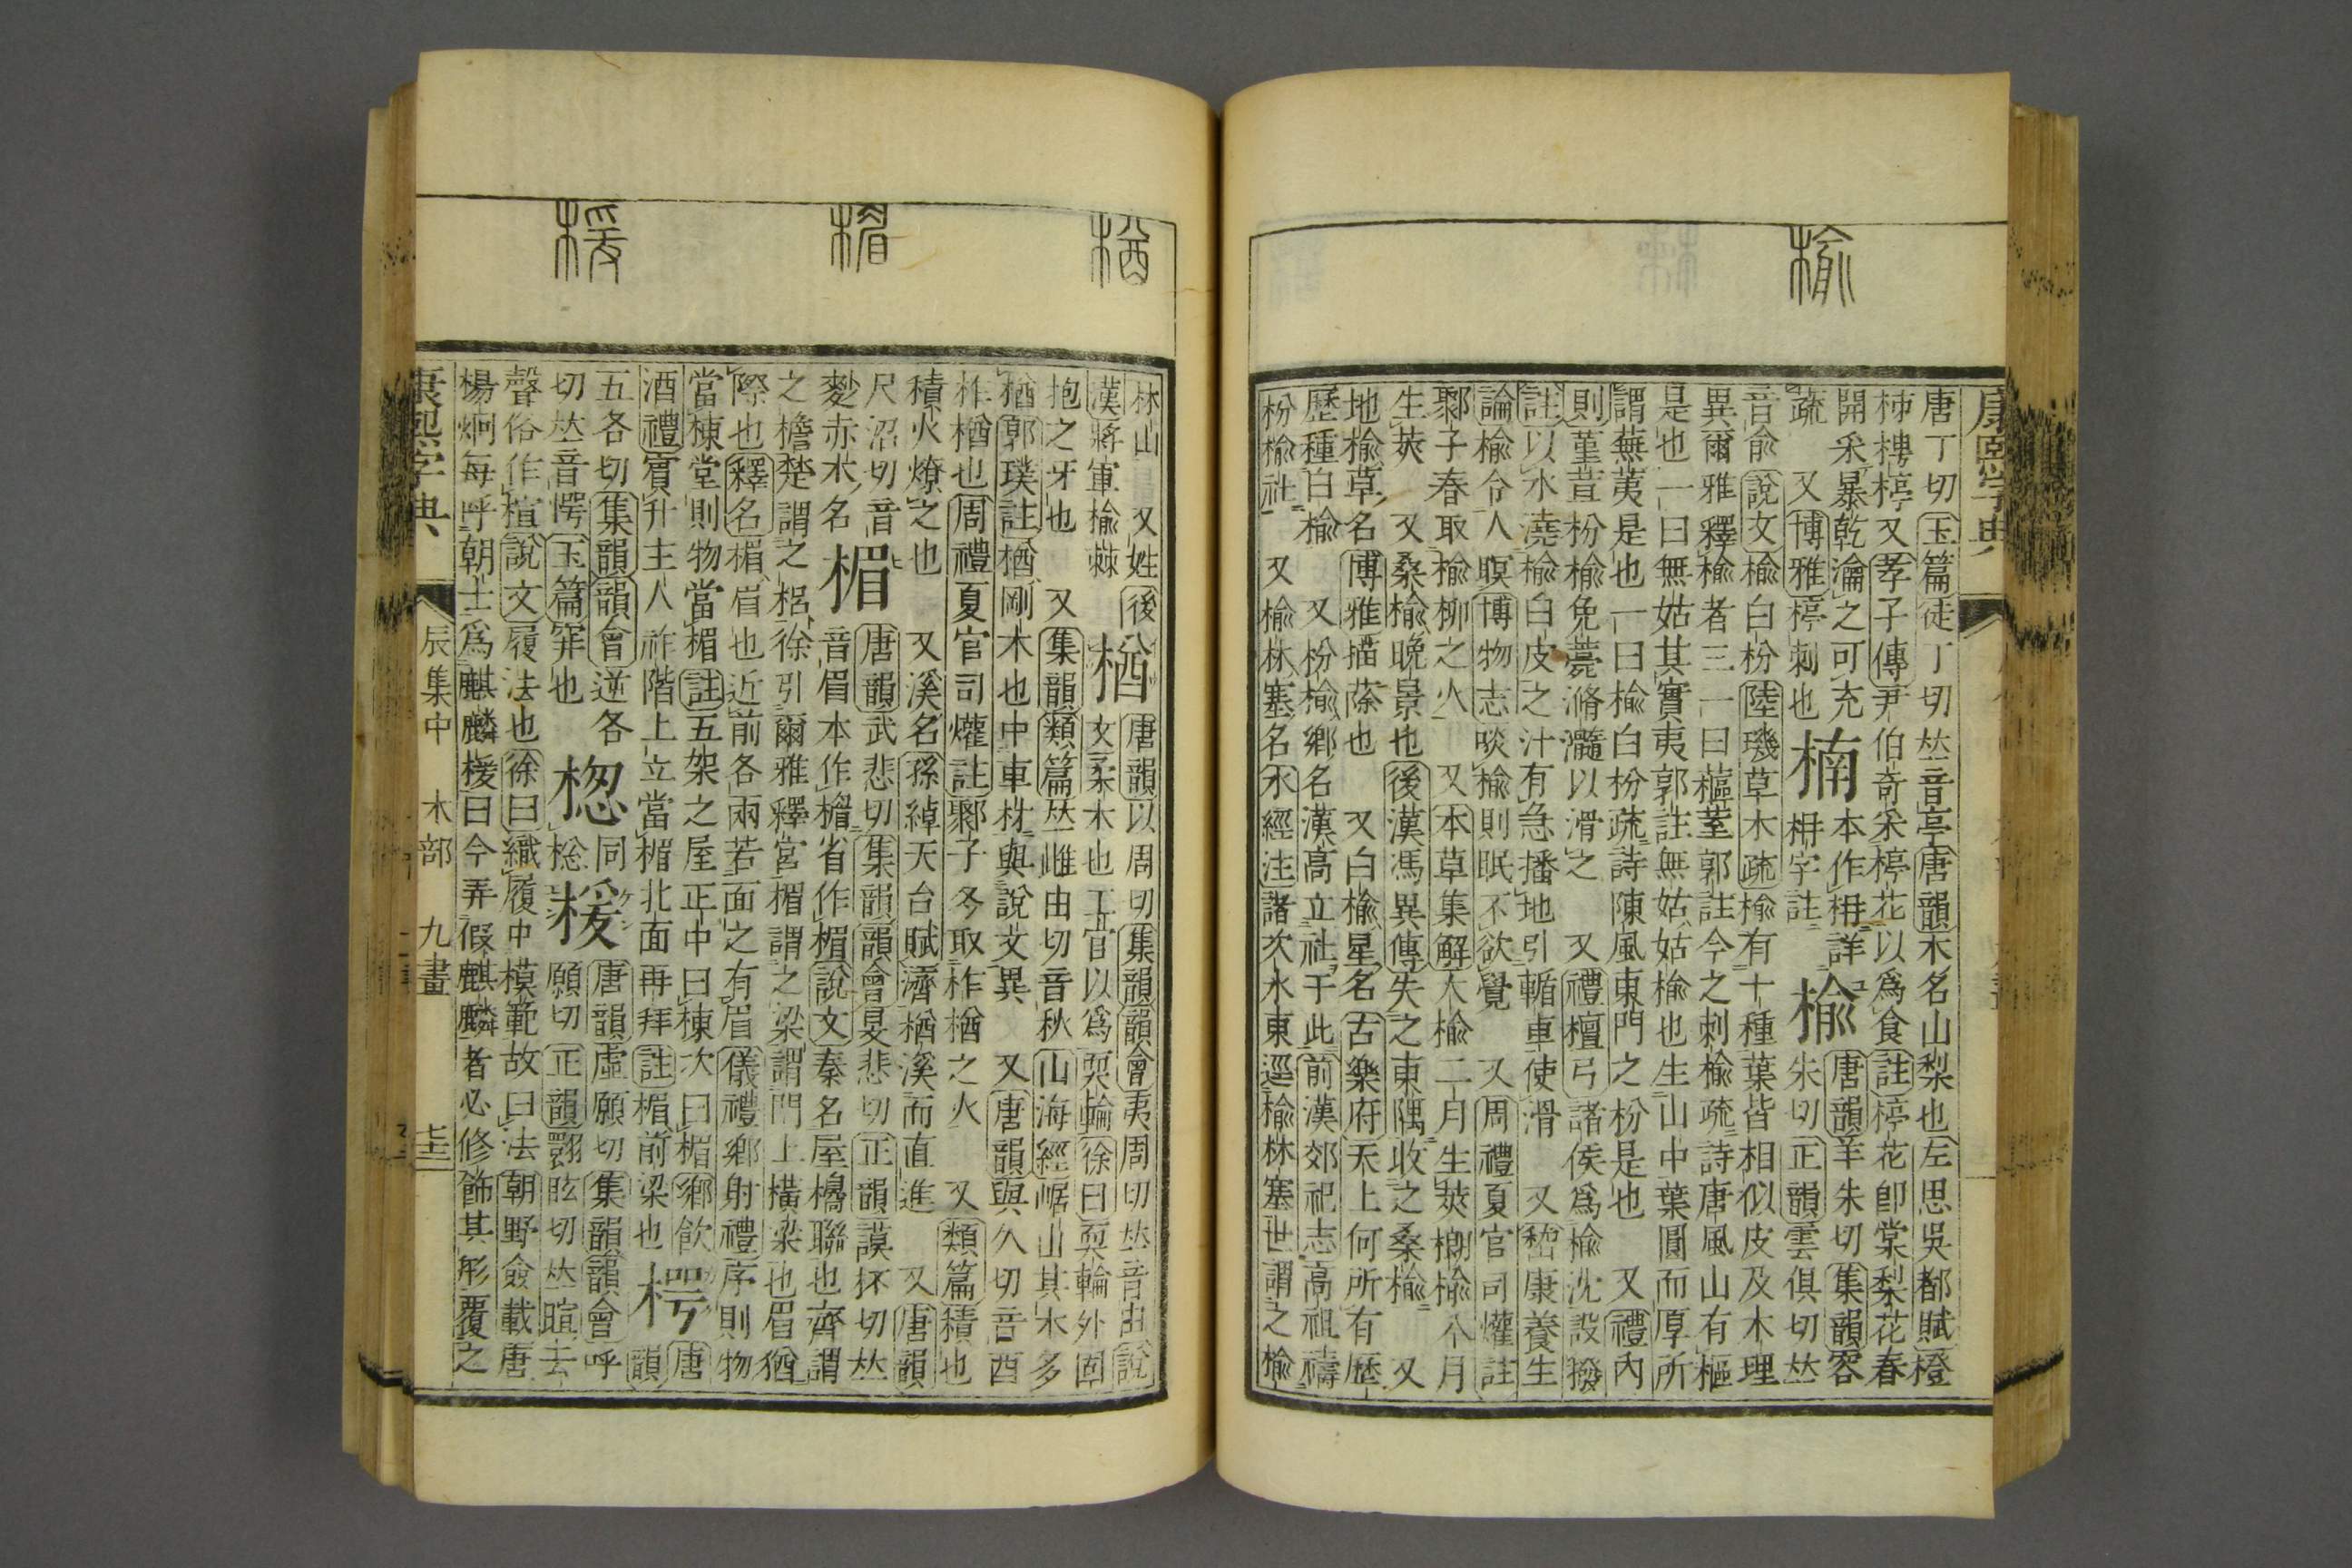 康熙字典
楡
唐丁切玉篇徒丁切𠀤音亭唐韻木名山梨也左思吳都賦橙
柹樓楟又孝子傳尹伯奇采楟花以爲食註楟花卽棠梨花春
開采暴乾瀹之可充
疏　又博雅楟刺也
楠
本作枏詳
枏字註
楡
唐韻羊朱切集韻容
朱切正韻雲俱切𠀤
音俞　說文楡白枌陸璣草木疏楡有十種葉皆相似皮及木理
異爾雅釋楡者三一曰藲荎郭註今之刺楡疏詩唐風山有樞
是也一曰無姑其實夷郭註無姑姑楡也生山中葉圓而厚所
謂蕪荑是也一曰楡白枌疏詩陳風東門之枌是也　又禮內
則堇荁枌楡免薧滫瀡以滑之　又禮檀弓諸侯爲楡沈設撥
註以水澆楡白皮之汁有急播地引輴車使滑　又嵇康養生
論楡令人暝博物志啖楡則眠不欲覺　又周禮夏官司爟註
鄹子春取楡柳之火　又本草集解大楡二月生莢榔楡八月
生莢　又桑楡晚景也後漢馮異傳失之東隅收之桑楡　又
地楡草名博雅蒤也　又白楡星名古樂府天上何所有歷
歷種白楡　又枌楡鄉名漢高立社于此前漢郊祀志高祖禱
枌楡社　又楡林塞名水經注諸次水東逕楡林塞世謂之楡
楢　楣　楥
林山　又姓後
漢將軍楡棘
楢
唐韻以周切集韻韻會夷周切𠀤音由說
文柔木也工官以爲耎輪徐曰耎輪外固
抱之牙也　又集韻類篇𠀤雌由切音秋山海經崌山其木多
楢郭璞註楢剛木也中車材與說文異　又唐韻與久切音酉
柞楢也周禮夏官司爟註鄹子冬取柞楢之火　又類篇積也
積火燎之也　又溪名孫綽天台賦濟楢溪而直進　又唐韻
尺沼切音
麨赤木名
楣
唐韻武悲切集韻韻會旻悲切正韻謨杯切𠀤
音眉本作𣙩省作楣說文秦名屋櫋聯也齊謂
之檐楚謂之梠徐引爾雅釋宮楣謂之梁謂門上橫梁也眉猶
際也釋名楣眉也近前各兩若面之有眉儀禮鄉射禮序則物
當棟堂則物當楣註五架之屋正中曰棟次曰楣鄉飮
酒禮賓升主人阼階上立當楣北面再拜註楣前梁也
㮙
唐
韻
五各切集韻韻會逆各
切𠀤音愕玉篇穽也
楤
同
棇
楥
唐韻虛願切集韻韻會呼
願切正韻翾眩切𠀤暄去
聲俗作楦說文履法也徐曰織履中模範故曰法朝野僉載唐
楊炯每呼朝士爲麒麟楥曰今弄假麒麟者必修飾其形覆之
康熙字典　辰集中　木部　九畫